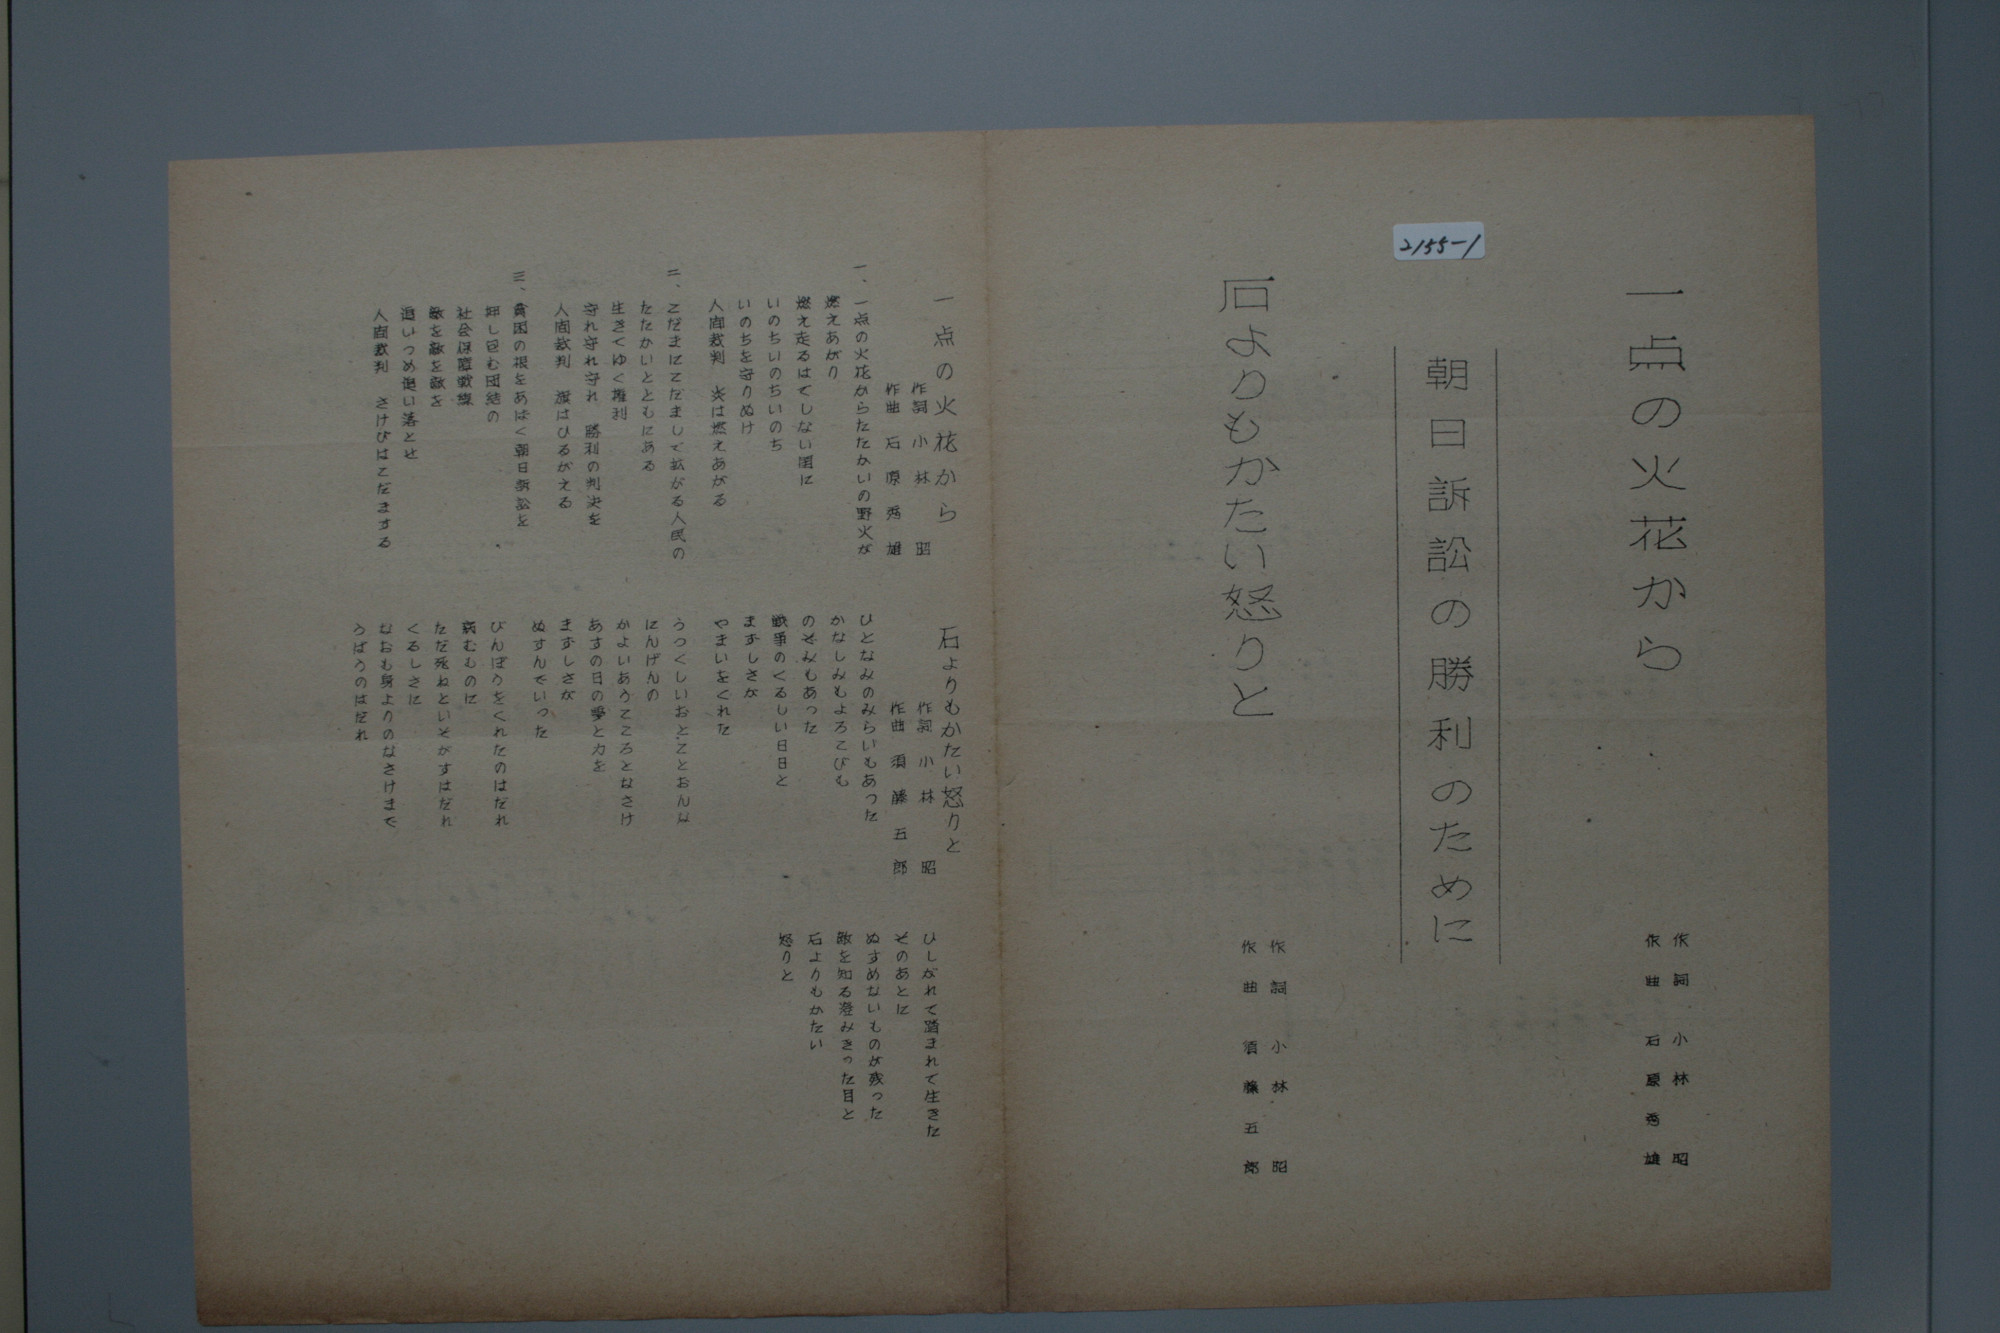 一点の火花から
作詞 小林 昭
作曲 石原秀雄
朝日訴訟の勝利のために
2155-1
石よりもかたい怒りと
作詞 小林 昭
作曲 須藤五郎
一点の火花から
作詞 小林 昭
作曲 石原秀雄
一、一点の火花からたたかいの野火が
燃えあがり
燃え走るはてしない国に
いのちいのちいのち
いのちを守りぬけ
人間裁判 炎は燃えあがる
二、こだまにこだまして拡がる人民の
たたかいとともにある
生きてゆく権利
守れ守れ守れ 勝利の判決を
人間裁判 旗はひるがえる
三、貧困の根をあばく朝日訴訟を
押し包む団結の
社会保障戦線
敵を敵を敵を
追いつめ追い落とせ
人間裁判 さけびはこだまする
石よりもかたい怒りと
作詞 小林 昭
作曲 須藤五郎
ひとなみのみらいもあった
かなしみもよろこびも
のぞみもあった
戦争のくるしい日日と
まずしさが
やまいをくれた
うつくしいおとことおんな
にんげんの
かよいあうこころとなさけ
あすの日の夢と力を
まずしさが
ぬすんでいった
びんぼうをくれたのはだれ
病むものに
ただ死ねといそがすはだれ
くるしさに
なおも身よりのなさけまで
うばうのはだれ
ひしがれて踏まれて生きた
そのあとに
ぬすめないものが残った
敵を知る澄みきった目と
石よりもかたい
怒りと